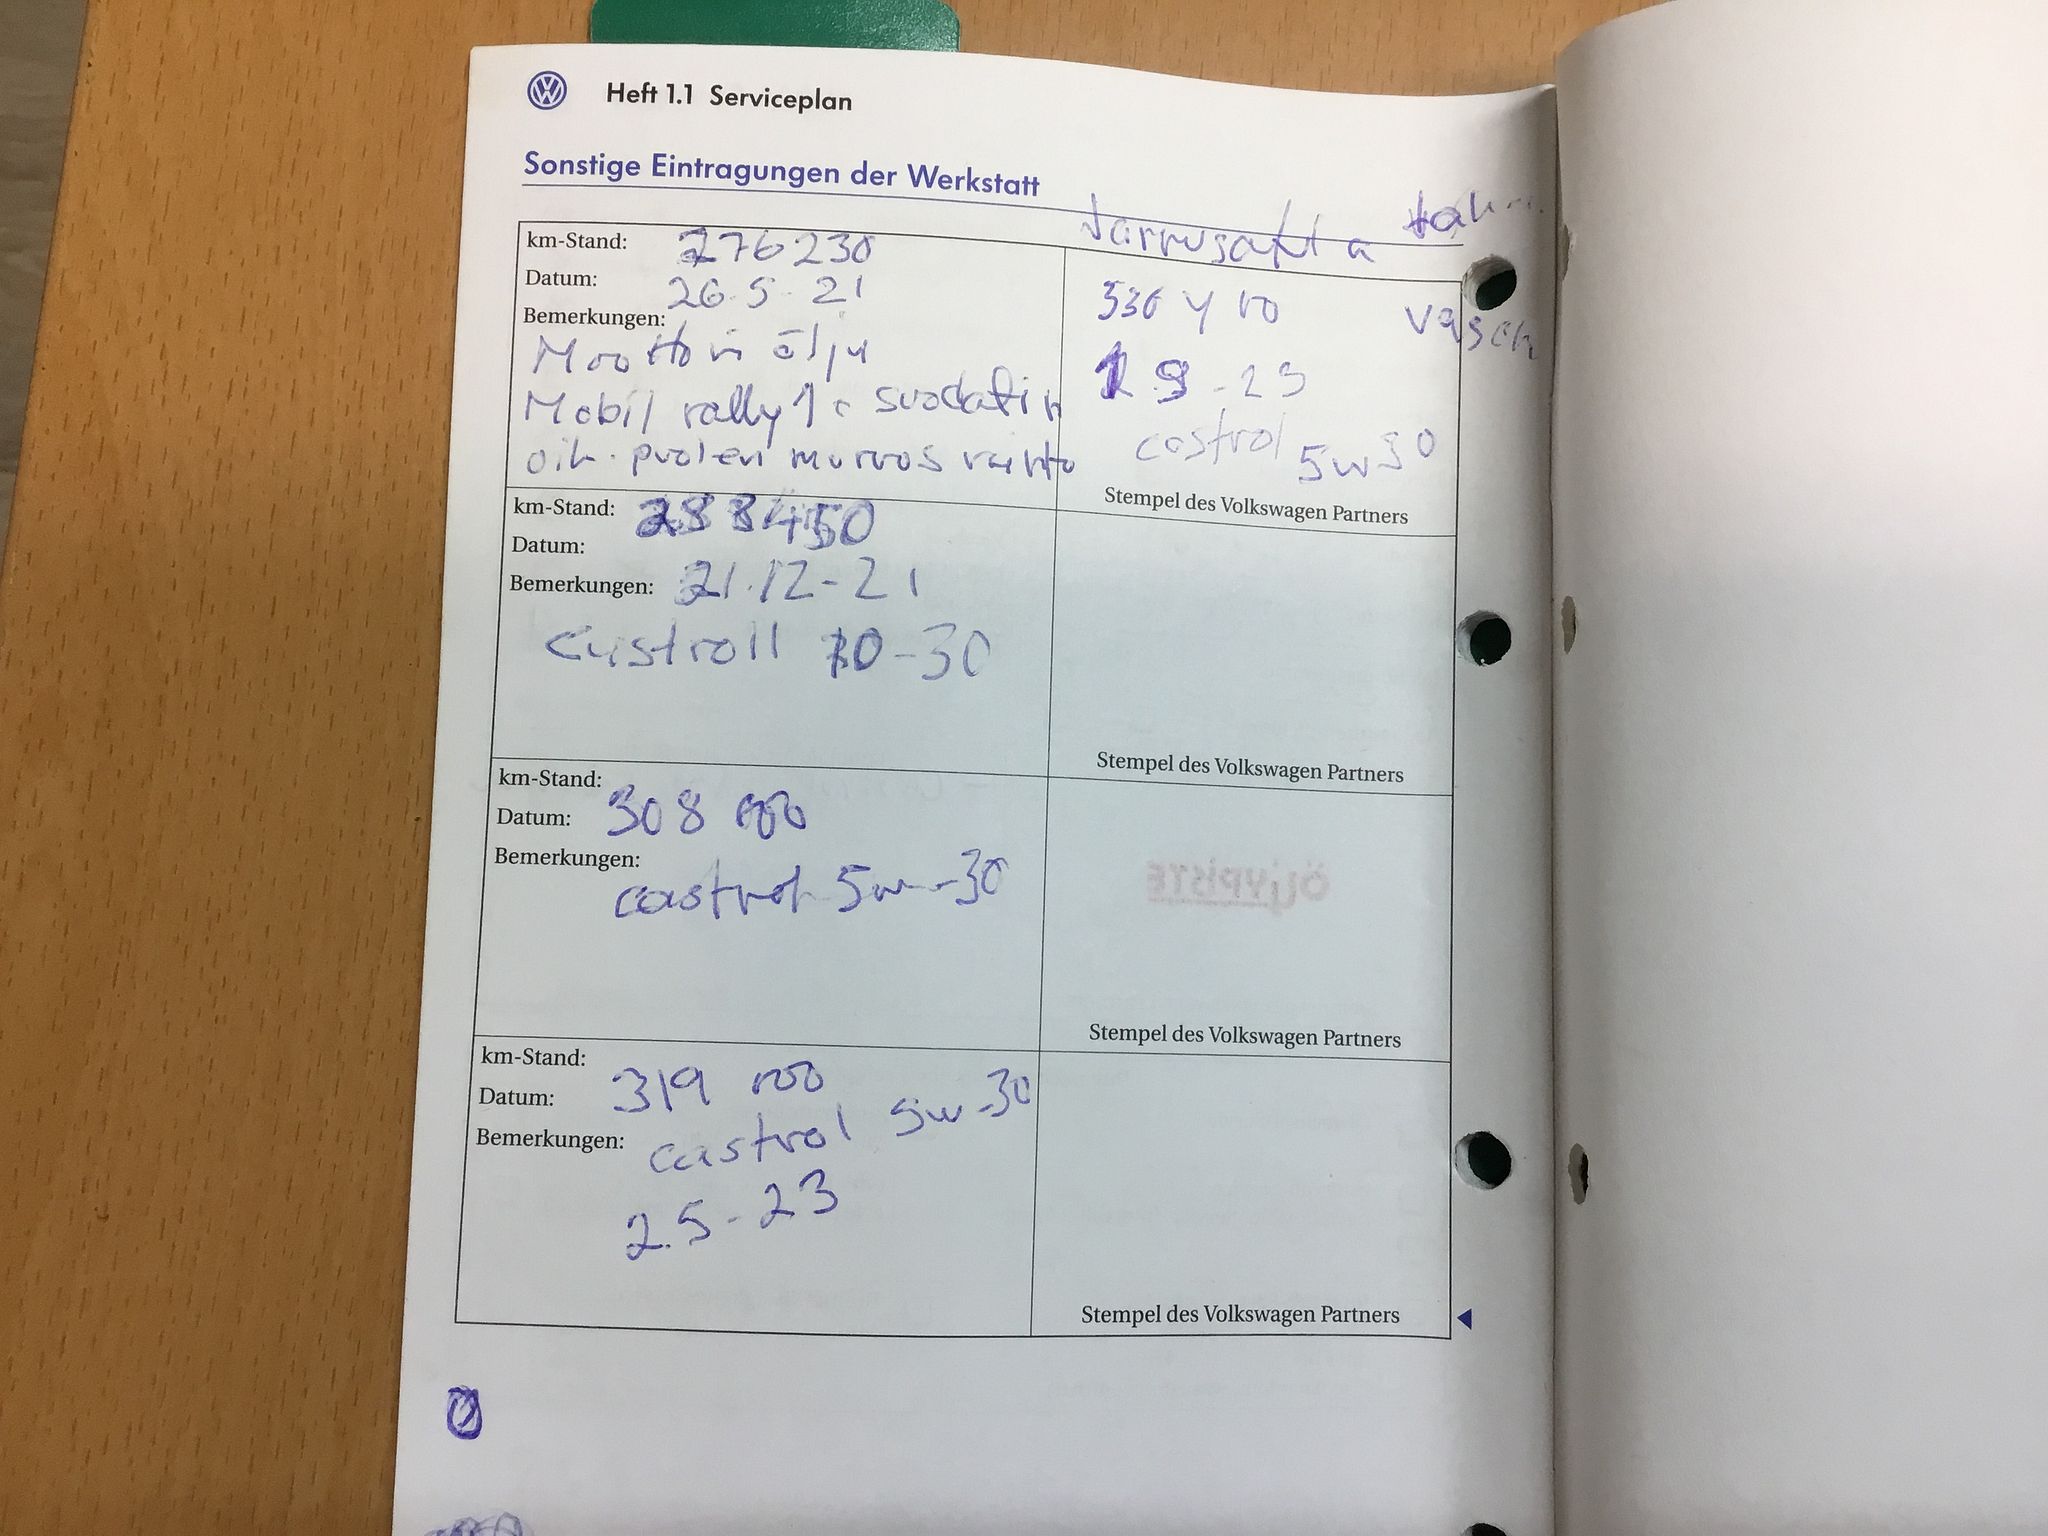 Heft 1.1 Serviceplan
Sonstige Eintragungen der Werkstatt
km-Stand: 276230
Datum: 26.5-21
Bemerkungen:
Moottoriöljy
Mobil rally 1 + suodatin
oik. puolen murrosnivel
Jarrusatula takan
vasen
19-23
castrol 5w30
Stempel des Volkswagen Partners
km-Stand: 288450
Datum:
Bemerkungen: 21.12-21
Castroll 10-30
Stempel des Volkswagen Partners
km-Stand:
Datum: 308 000
Bemerkungen:
castrol 5w-30
ÖLJYPISTE
Stempel des Volkswagen Partners
km-Stand:
Datum: 319 100
Bemerkungen: castrol 5w-30
2.5-23
Stempel des Volkswagen Partners